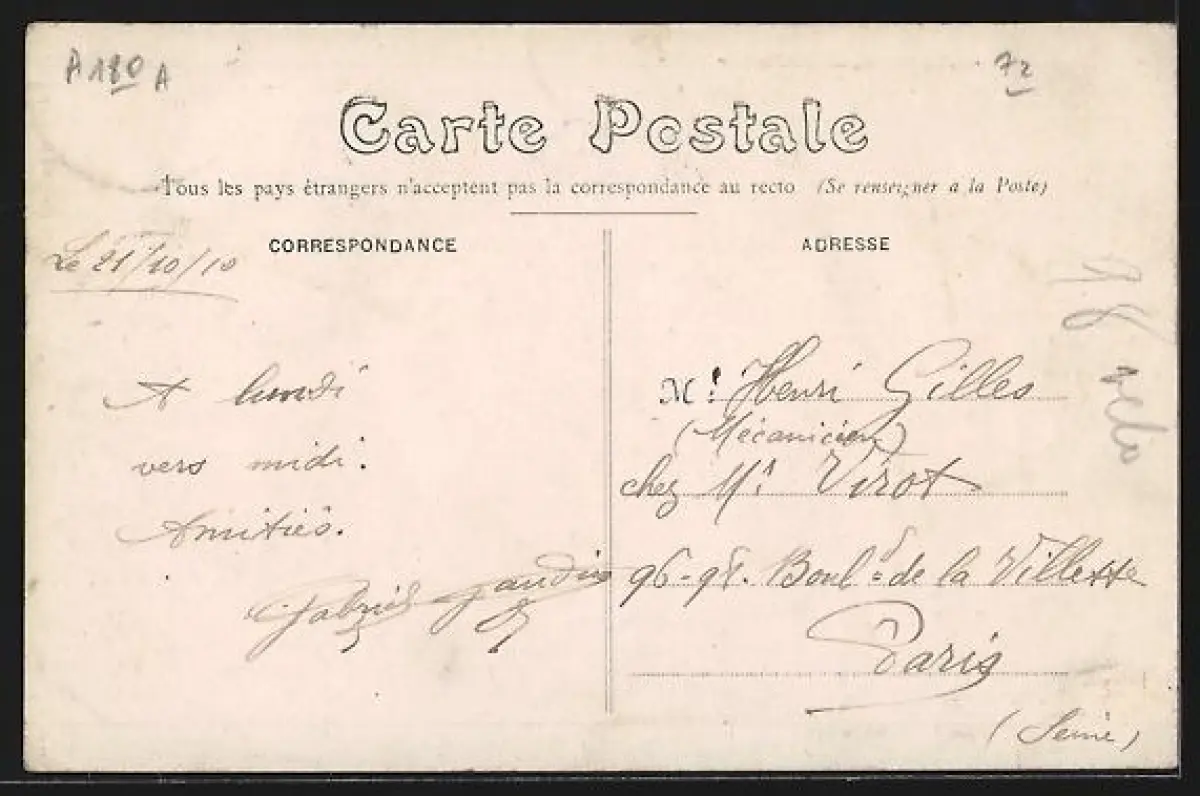 A 180 A
72
Carte Postale
Tous les pays étrangers n'acceptent pas la correspondance au recto (Se renseigner a la Poste)
CORRESPONDANCE
Le 21/10/10
A lundi
vers midi.
Amitiés.
Gabriel
ADRESSE
Mr Henri Gilles
(Mécanicien)
chez Mr Virot
96-98. Boul d de la Villette
Paris
(Seine)